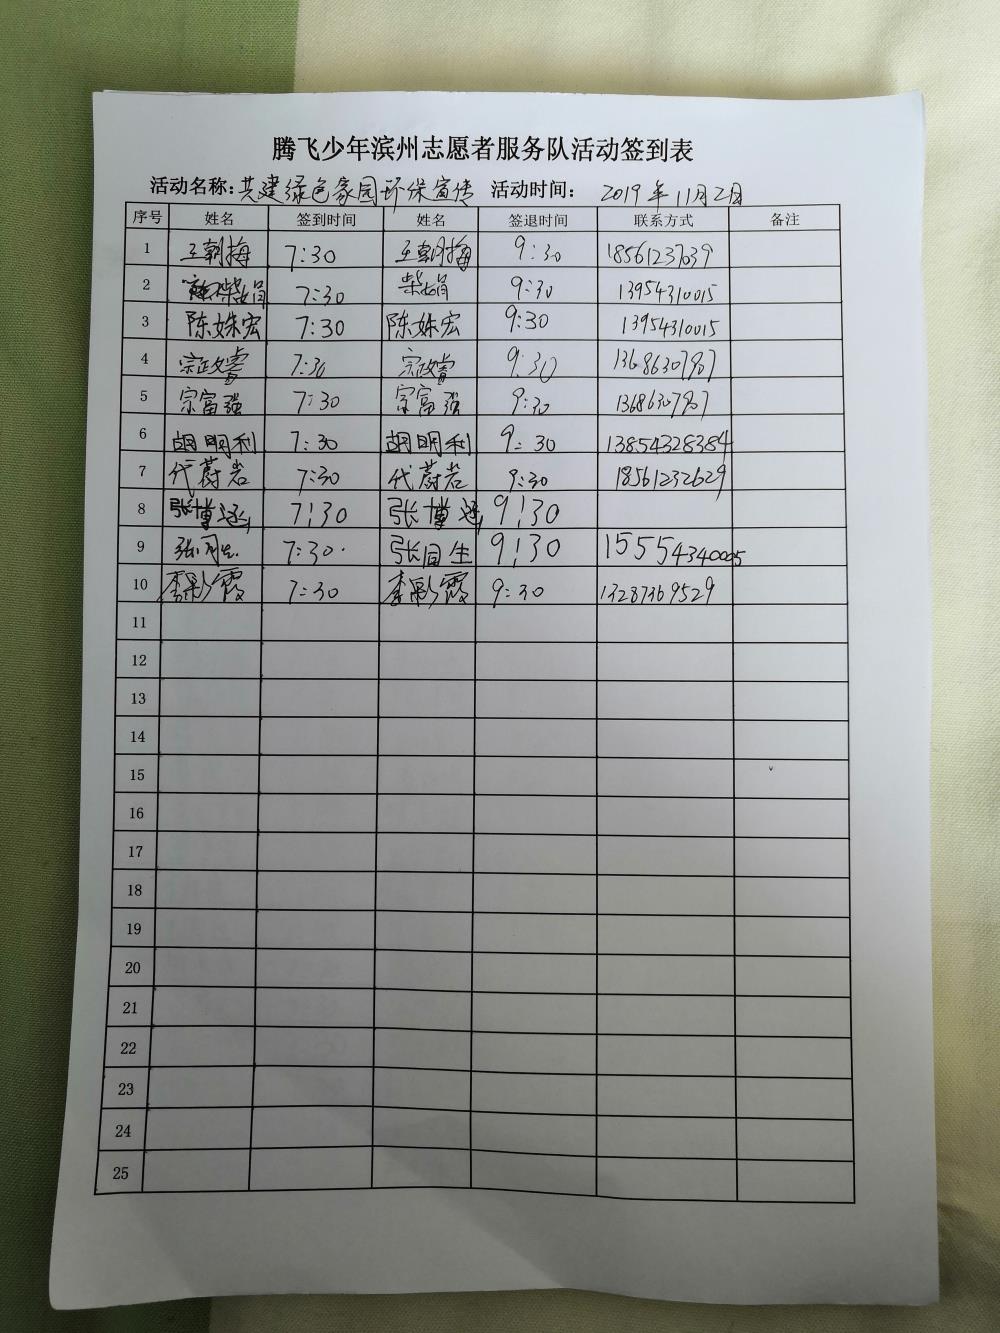 腾飞少年滨州志愿者服务队活动签到表
活动名称：共建绿色家园环保宣传 活动时间： 2019年11月2日
序号 姓名 签到时间 姓名 签退时间 联系方式 备注
1 王朝梅 7:30 王朝梅 9:30 18561237039
2 柴娟 7:30 柴娟 9:30 13954310015
3 陈姝宏 7:30 陈姝宏 9:30 13954310015
4 宗政睿 7:30 宗政睿 9:30 13686307907
5 宗富强 7:30 宗富强 9:30 13686307907
6 胡明利 7:30 胡明利 9:30 13854328384
7 代蔚岩 7:30 代蔚岩 9:30 18561232629
8 张博涵 7:30 张博涵 9:30
9 张同生 7:30 张同生 9:30 15554340005
10 李彩霞 7:30 李彩霞 9:30 13287369529
11
12
13
14
15
16
17
18
19
20
21
22
23
24
25